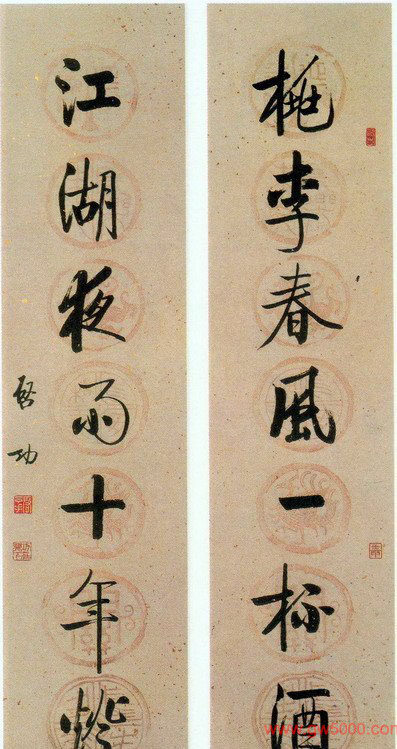 桃李春風一杯酒
江湖夜雨十年燈
啓功
www.gw5000.com